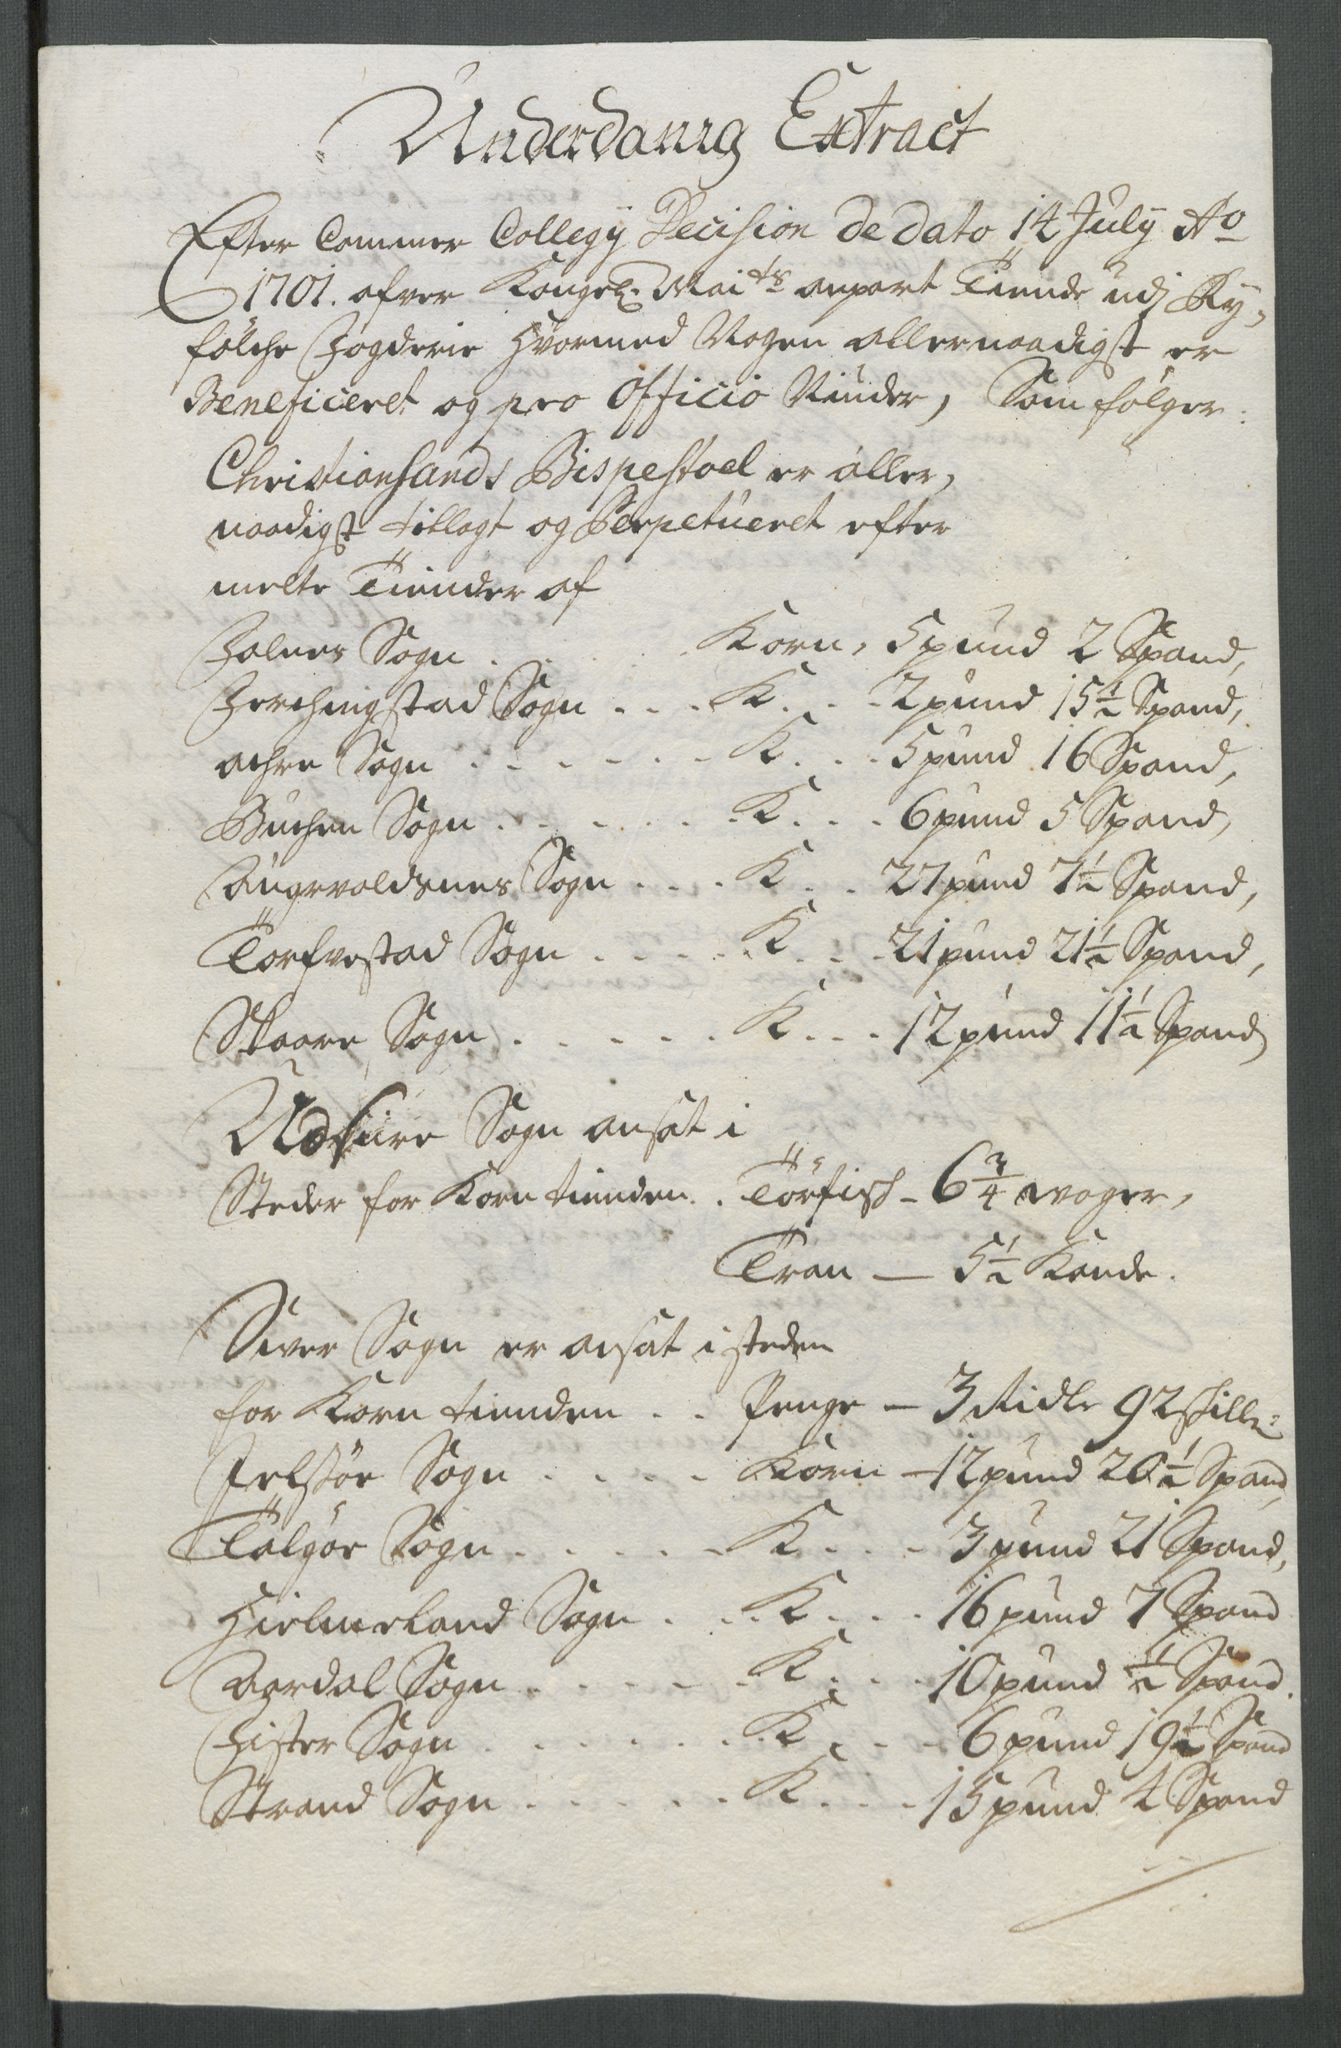 Underdanig Extract
Efter Cammer Collegij Decision de dato 14 July Ao
1701. ofver Kongel. Maits anpart Tiende udj Ry,
fölche Fogderie Hvormed Nogen allernaadigst er
Beneficeret og pro Officio Niuder, Som fölger.
Christiansands Bispestoel er aller,
naadigst tillagt og Perpetueret efter
melte Tiender af
Falnes Sogn . . . Korn, 5 pund 2 Spand,
Ferchingstad Sogn . . . K . . . 2 pund 15½ Spand,
Achre Sogn . . . . . . K . . . 5 pund 16 Spand,
Buchen Sogn . . . . . . K . . . 6 pund 5 Spand,
Augvoldsnes Sogn . . . K . . . 27 pund 7½ Spand,
Torfvestad Sogn . . . . . K . . . 21 pund 21½ Spand,
Skaare Sogn . . . . . K . . . 12 pund 11½ Spand
Udsire Sogn ansat i
Steder for Korn tienden . Törfisch - 6¾ woger,
Tran — 5½ Kande.
Siver Sogn er ansat i steden
for Korn tienden . . Penge — 3 Ridlr 92 skill:
Jelsöe Sogn . . . . Korn — 12 pund 20½ Spand,
Talgöe Sogn . . . . . K . . . 3 pund 21 Spand,
Hielmeland Sogn . . . K . . . 16 pund 7 Spand
Aardal Sogn . . . . . K . . . 10 pund ½ Spand.
Fister Sogn . . . . . . K . . . 6 pund 19½ Spand
Strand Sogn . . . . . K . . . 15 pund 4 Spand